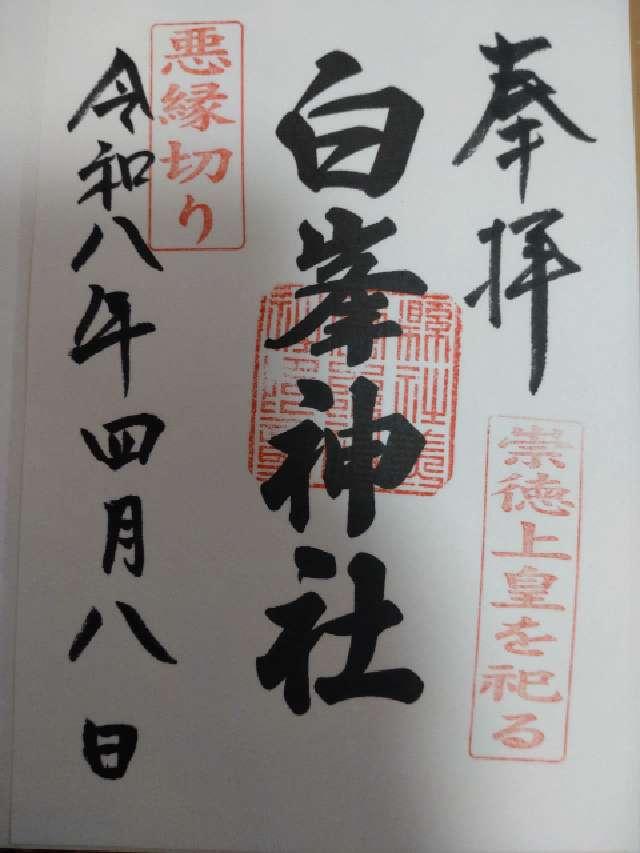 奉拝
崇徳上皇を祀る
白峯神社
悪縁切り
令和八年四月八日